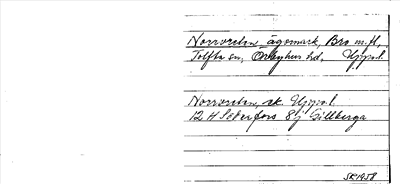 Norrveten ägomark, Bro m.fl.
Tolfta sn, Örbyhus hd, Uppsl.
Norrveten, ek Uppsl.
12 H Söderfors 8j Gillberga
SK1958